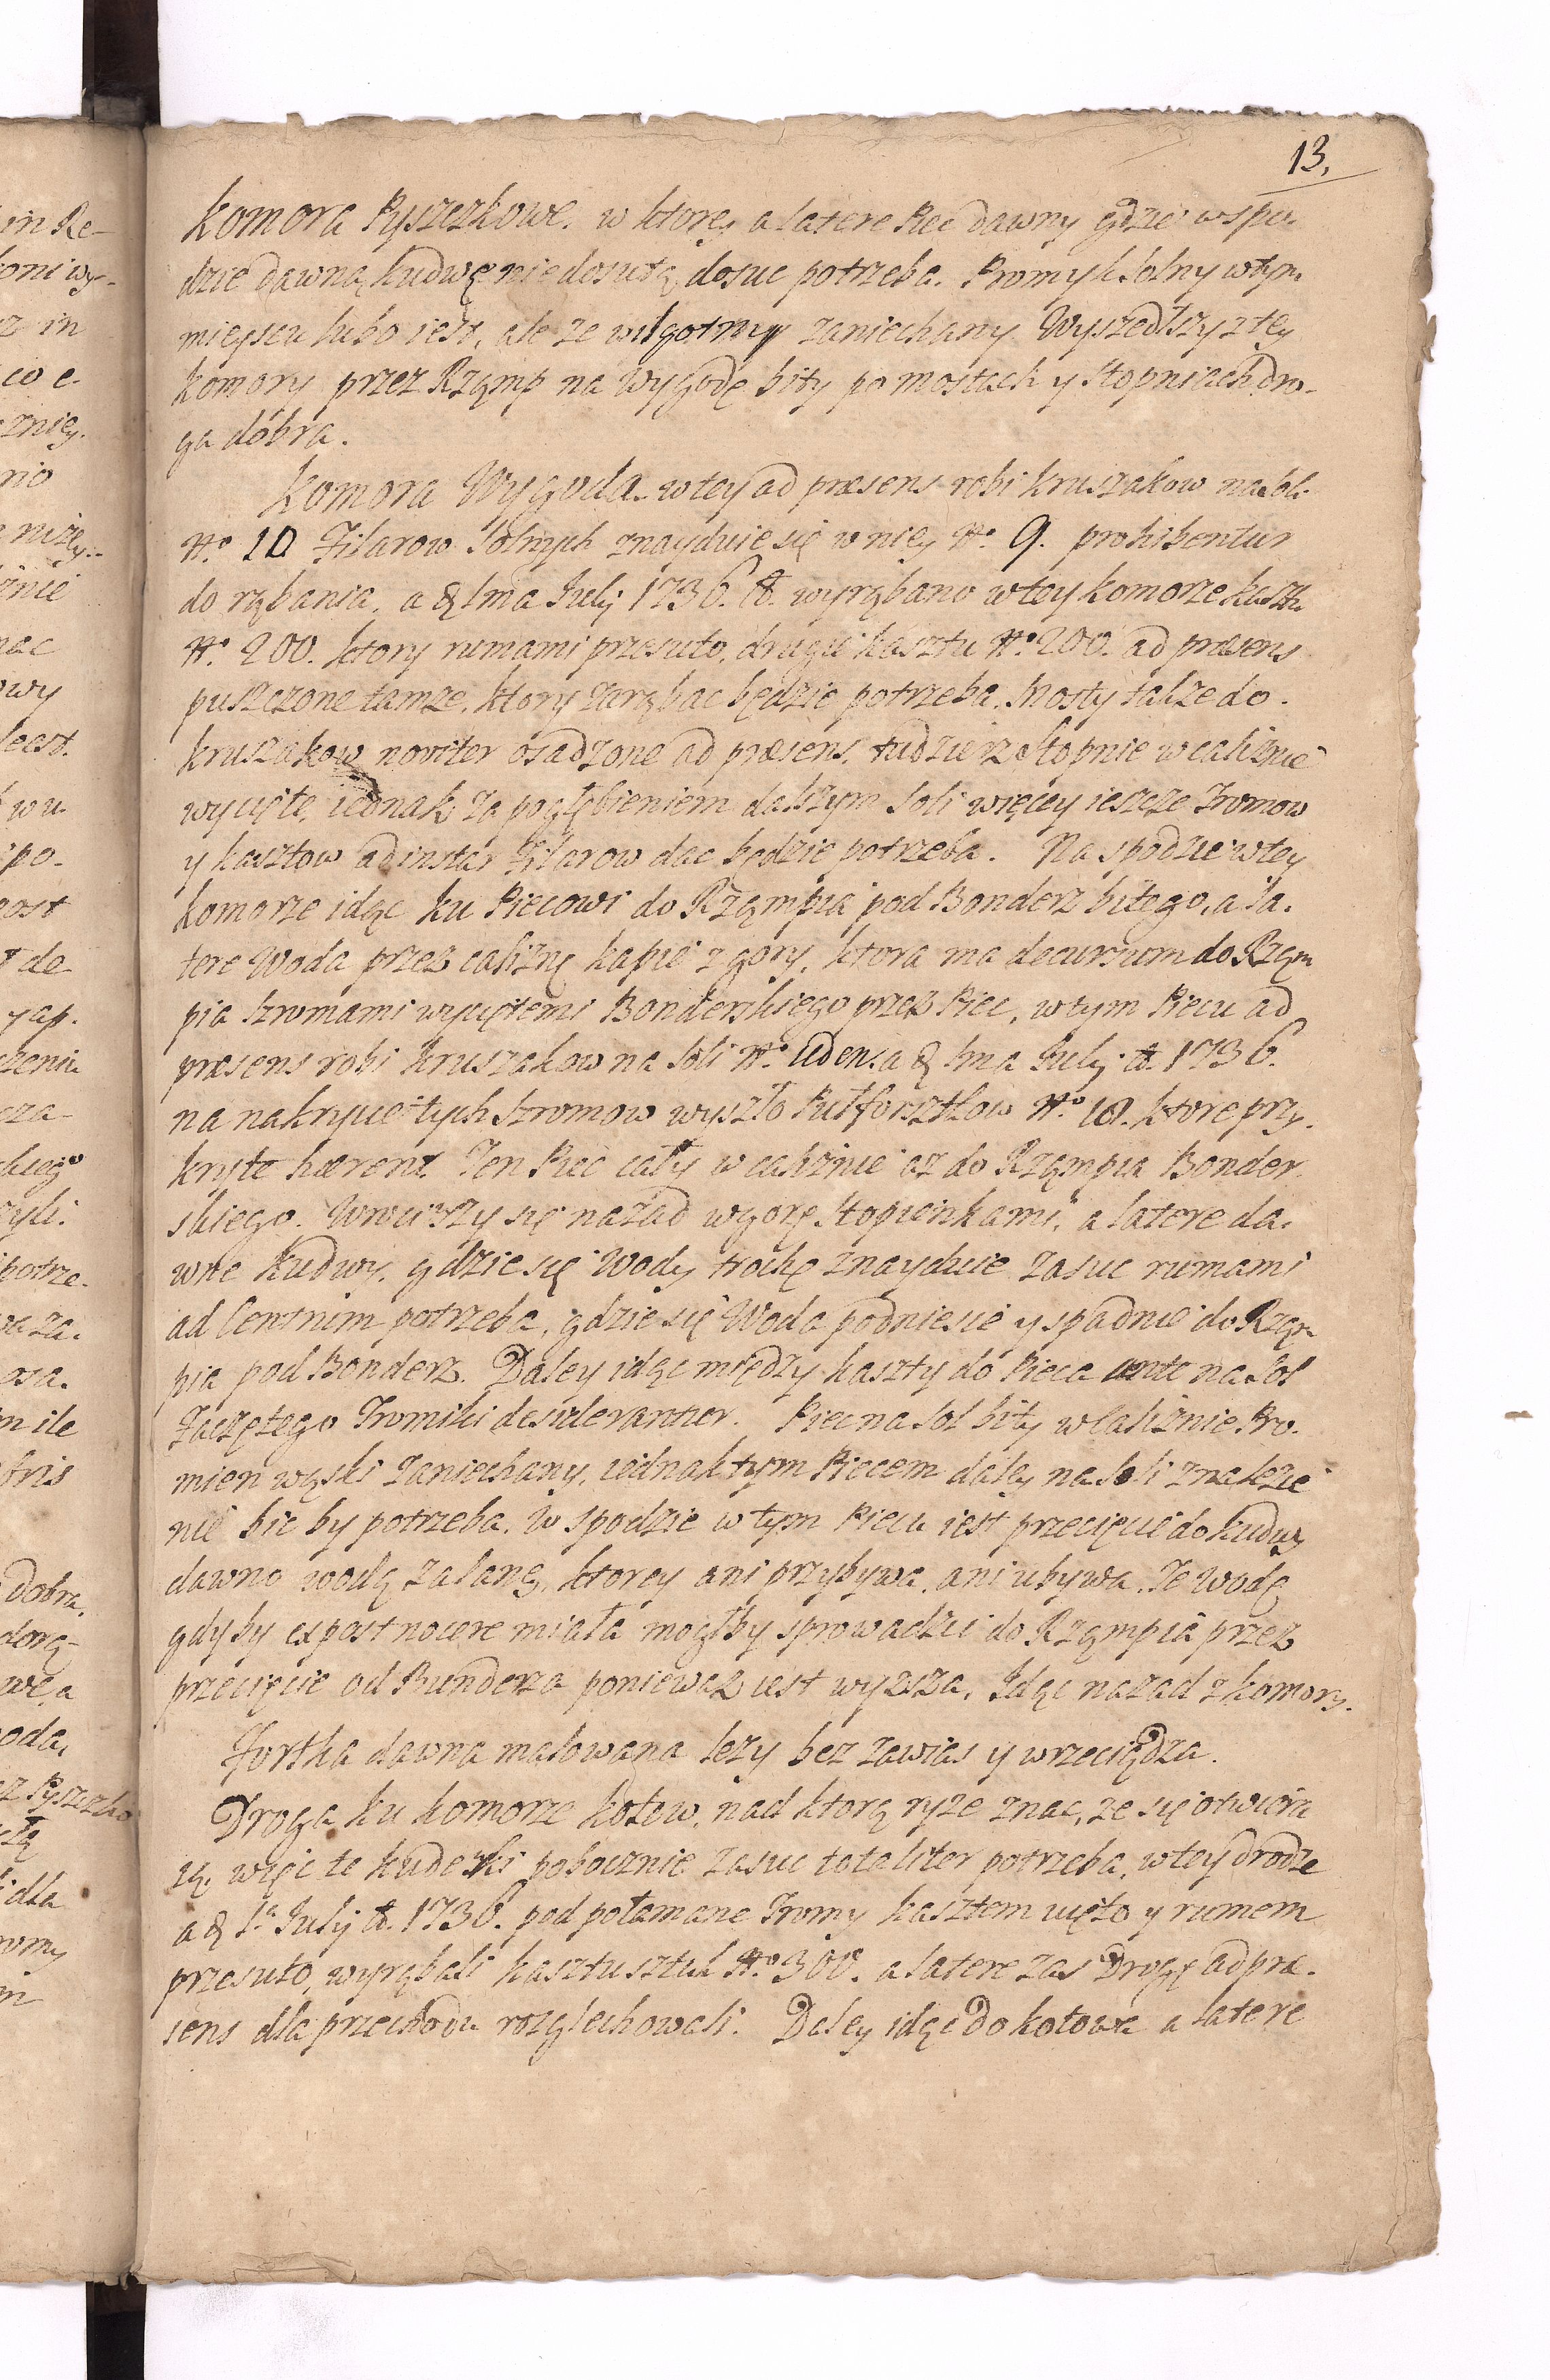 13.
Komora Pyszczkowe. w ktorey a latere Piec dawny gdzie w spo-
dzie dawną kudwę niedosutą dosuc potrzeba. Promyk solny w tym
mieyscu lubo iest, ale ze wilgotny zaniechany. Wyszedłszy z tey
komory przez Rząmp na Wygodę bity po mostach y stopniach dro-
ga dobra.
Komora Wygoda. w tey ad præsens robi kruszakow na soli
No. 10 Filarow Solnych znayduie się w niey No. 9. prohibentur
do rąbania, a 1ma July 1736. wyrąbano w tey komorze kasztu
No. 200. ktory rumami przesuto, drugie kasztu No. 200. ad præsens
puszczone tamze, ktory zarąbac będzie potrzeba. Mosty takze do
kruszakow noviter osadzone ad præsens, tudziesz stopnie w caliznie
wycięte, iednak za pogłębieniem dalszym soli więcey ieszcze Tromow
y kasztow ad instar Filarow dac będzie potrzeba. Na spodzie w tey
komorze idąc ku Piecowi do Rząmpia pod Bonderz bitego, a la-
tere Woda przez caliznę kapie z gory, ktora ma decursum do Rząm
pia sztromami wyciętemi Bonderskiego przez Piec, w tym Piecu ad
præsens robi kruszakow na soli No. a 1ma July 1736.
na nakrycie tych sztromow wyszło Pułforsztow No. 10. ktore przy-
kryte hærent. Ten Piec cały w caliznie az do Rząmpia Bonder-
skiego. Wrociwszy się nazad w gorę stopienkami, a latere da-
wne kudwy, gdzie się Wody trochę znayduie zasuc rumami
ad Centrum potrzeba, gdzie się Woda podniesie y spadnie do Rząm
pia pod Bonderz. Daley idąc między kaszty do Pieca ante na sol
zaczętego Tromiki desiderantur. Piec na sol bity w caliznie Pro-
mien wąski zaniechany, iednak tym Piecem daley na soli znalezie
nie bic by potrzeba. W spodzie w tym Piecu iest przecięcie do kudwy
dawno wodą zalaney, ktorey ani przybywa, ani ubywa. Te wodę
gdyby ex post nocere miała mogłby sprowadzic do Rząmpia przez
przecięcie od Bunderza poniewaz iest wyzsza. Idąc nazad z komory.
Fortka dawna malowana lezy bez zawias y wrzeciądza.
Droga ku komorze kotow, nad ktorą ryze znac, ze się otwiera
ią, więc te kuderki pobocznie zasuc totaliter potrzeba, w tey drodze
a 1a July 1736. pod połamane Tromy kasztem uięto y rumem
przesuto, wyrąbali kasztu sztuk No. 300. a latere zas Drogę ad præ-
sens dla przechodu rozglechowali. Daley idąc do kotowa a latere